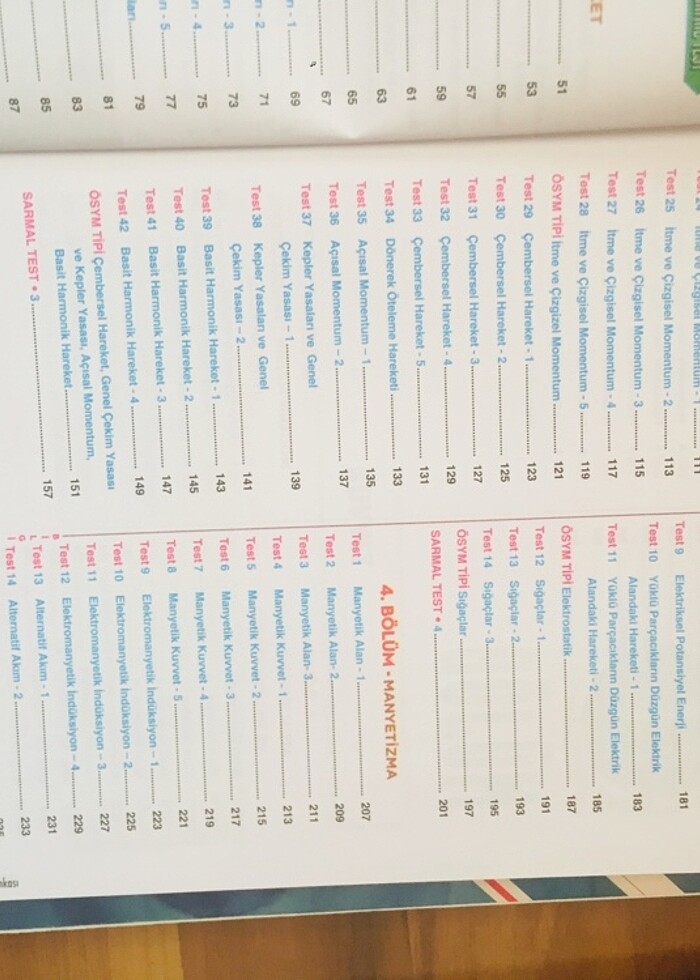 51
53
55
57
59
61
63
65
67
n - 1 69
n - 2 71
n - 3 73
n - 4 75
n - 5 77
79
81
83
85
87
111
Test 25 İtme ve Çizgisel Momentum - 2 113
Test 26 İtme ve Çizgisel Momentum - 3 115
Test 27 İtme ve Çizgisel Momentum - 4 117
Test 28 İtme ve Çizgisel Momentum - 5 119
ÖSYM TİPİ İtme ve Çizgizel Momentum 121
Test 29 Çembersel Hareket - 1 123
Test 30 Çembersel Hareket - 2 125
Test 31 Çembersel Hareket - 3 127
Test 32 Çembersel Hareket - 4 129
Test 33 Çembersel Hareket - 5 131
Test 34 Dönerek Öteleme Hareketi 133
Test 35 Açısal Momentum – 1 135
Test 36 Açısal Momentum – 2 137
Test 37 Kepler Yasaları ve Genel
Çekim Yasası – 1 139
Test 38 Kepler Yasaları ve Genel
Çekim Yasası – 2 141
Test 39 Basit Harmonik Hareket - 1 143
Test 40 Basit Harmonik Hareket - 2 145
Test 41 Basit Harmonik Hareket - 3 147
Test 42 Basit Harmonik Hareket - 4 149
ÖSYM TİPİ Çembersel Hareket, Genel Çekim Yasası
ve Kepler Yasası, Açısal Momentum,
Basit Harmonik Hareket 151
SARMAL TEST • 3 157
Test 9 Elektriksel Potansiyel Enerji 181
Test 10 Yüklü Parçacıkların Düzgün Elektrik
Alandaki Hareketi - 1 183
Test 11 Yüklü Parçacıkların Düzgün Elektrik
Alandaki Hareketi - 2 185
ÖSYM TİPİ Elektrostatik 187
Test 12 Sığaçlar - 1 191
Test 13 Sığaçlar - 2 193
Test 14 Sığaçlar - 3 195
ÖSYM TİPİ Sığaçlar 197
SARMAL TEST • 4 201
4. BÖLÜM - MANYETİZMA
Test 1 Manyetik Alan - 1 207
Test 2 Manyetik Alan- 2 209
Test 3 Manyetik Alan- 3 211
Test 4 Manyetik Kuvvet - 1 213
Test 5 Manyetik Kuvvet - 2 215
Test 6 Manyetik Kuvvet - 3 217
Test 7 Manyetik Kuvvet - 4 219
Test 8 Manyetik Kuvvet - 5 221
Test 9 Elektromanyetik İndüksiyon – 1 223
Test 10 Elektromanyetik İndüksiyon – 2 225
Test 11 Elektromanyetik İndüksiyon – 3 227
Test 12 Elektromanyetik İndüksiyon – 4 229
Test 13 Alternatif Akım - 1 231
Test 14 Alternatif Akım - 2 233